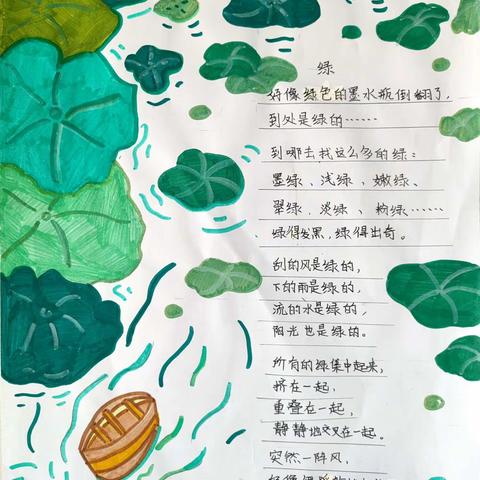 绿
好像绿色的墨水瓶倒翻了，
到处是绿的……
到哪去找这么多的绿：
墨绿、浅绿、嫩绿、
翠绿、淡绿、粉绿……
绿得发黑，绿得出奇。
刮的风是绿的，
下的雨是绿的，
流的水是绿的，
阳光也是绿的。
所有的绿集中起来，
挤在一起，
重叠在一起，
静静地交叉在一起。
突然一阵风，